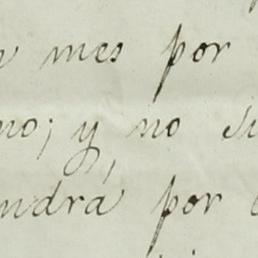 mes por
no; y no
ndrá por